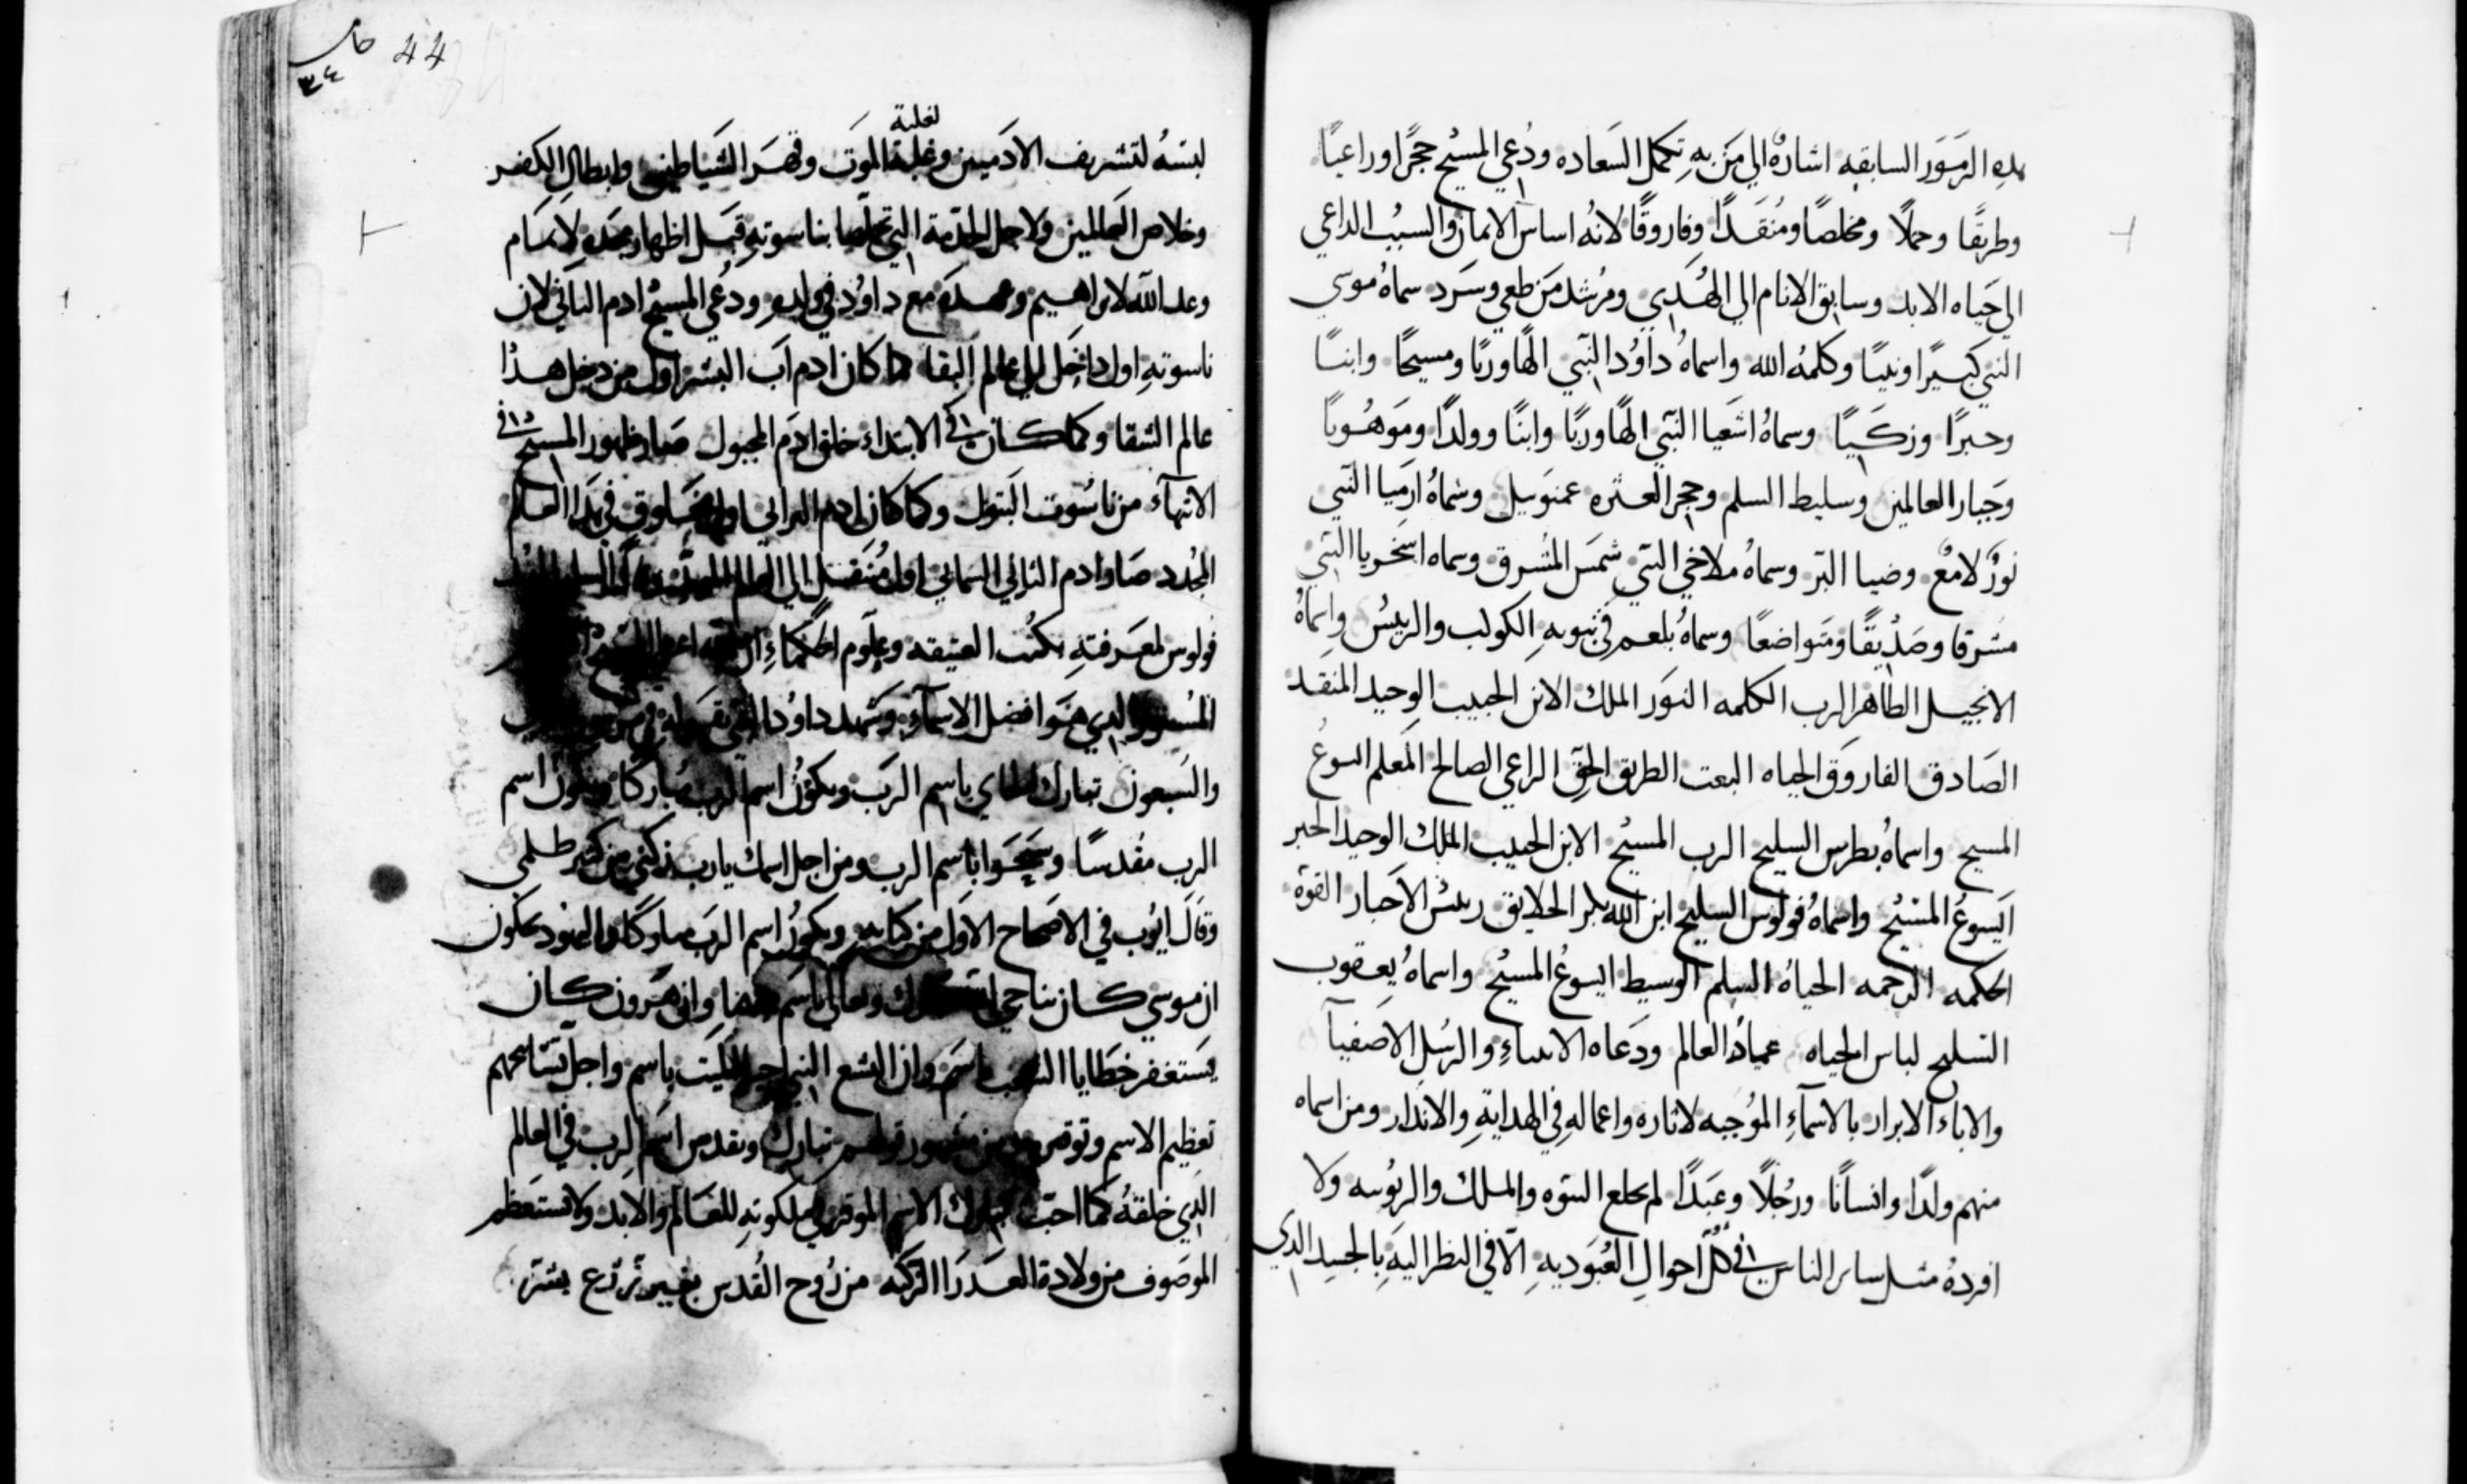 هذه الرموز السابقه اشارة الي من به تكمل السعاده ودُعي المسيح حجرًا وراعيًا
وطريقًا وحملًا ومخلصًا ومُنقدًا وفاروقًا لانه اساس الايمان والسبب الداعي
الي حياه الابد وسابق الانام الي الهُدي ومُرشد من طغي وشرد سماهُ موسي
النبي كبيرًا ونبيًا وكلمه الله واسماهُ داوُد النبي الهًا وربًا ومسيحًا وابنًا
وحبرًا وزكيًا وسماهُ اشعيا النبي الهًا وربًا وابنًا وولدًا وموهُوبًا
وجبار العالمين وسليط السلم وحجر العثره عمنوييل وسماهُ ارميا النبي
نورٌ لامعٌ وضيا البر وسماهُ ملاخي النبي شمس المُشرق وسماه زخريا النبي
مشرقا وصدّيقًا ومتواضعًا وسماهُ بلعم في نبوبه الكوكب والرييس واسماهُ
الانجيل الطاهر الرب الكلمه النور الملك الابن الحبيب الوحيد المنقد
الصادق الفاروق الحياه البعت الطريق الحق الراعي الصالح المعلم ايسوع
المسيح واسماهُ بطرس السليح الرب المسيح الابن الحبيب الملك الوحيد الحبر
ايسوعُ المسيح واسماهُ فولوس السليح ابن الله بكر الخلايق رييس الاحبار القوة
الحكمه الرحمه الحياهُ السلم الوسيط ايسوعُ المسيح واسماهُ يعقوب
السليح لباس الحياه عمادُ العالم ودعاه الانبياءِ والرسل الاصفيآ
والاباء الابرار بالاسمآءِ المُوجبه لاثاره واعماله في الهدايةِ والاندار ومن اسماه
منهم ولدًا وانسانًا ورجُلًا وعبدًا لم يخلع البنوه والملك والربُوبيه ولا
افردهُ مثل ساير الناس في كل احوالِ العُبوديهِ الّا في النظر اليهِ بالجسد الدي
44
٣٤
لغلبة
لبسهُ لتشريف الادميين وغلبة الموت وقهر الشياطين وابطال الكفر
وخلاص العالمين ولاجل الخدمة التي تخلصها بناسوتهِ قبل اظهار مجدهِ لاتمام
وعد الله لابراهيم وعهده مع داوُد في ولدهِ ودُعي المسيحُ ادم الثاني لان
ناسوتهِ اول داخل الي عالم البقا كما كان ادم اب البشر اول من دخل هدا
عالم الشقا وكما كان في الابتداء خلق ادم المجبول صار ظهور المسيح في
الانتهآء من ناسُوت البتول وكما كان ادم الترابي اول مخلوق في هدا العالم
المجُدد صار ادم الثاني السمايي اول مُنتقل الي العالم
فولوس لمعرفتهِ بكتُب العتيقه وعلوم الحُكماءِ
الدي هو افضل الاسمآءِ وشهد داوُد النبي بقوله في
والسبعون تبارك الجاي باسم الرب ويكوُن اسم الرب مُباركا ويكون اسم
الرب مقُدسًا وسبحوا باسم الرب ومن اجل اسمك يارب تزكني من كثير ظلمي
وقال ايُوب في الاصحاح الاول من كتابهِ ويكونُ اسم الرب مباركًا واليهود يحكون
ان موسي كان يناجي وان هرون كان
يستغفر خطايا الشعب باسم وان اليشع النبي احيا الميت باسم واجل تسابحهم
تعظيم الاسم وتوقير تبارك وتقدس اسم الرب في العالم
الدي خلقهُ كما احب تبارك الاسم الموقر في ملكوتهِ للعالم والابد ولا نستعظم
الموصُوف من ولادة العدرا الزكيه من رُوح القُدس بغير زرع بشر